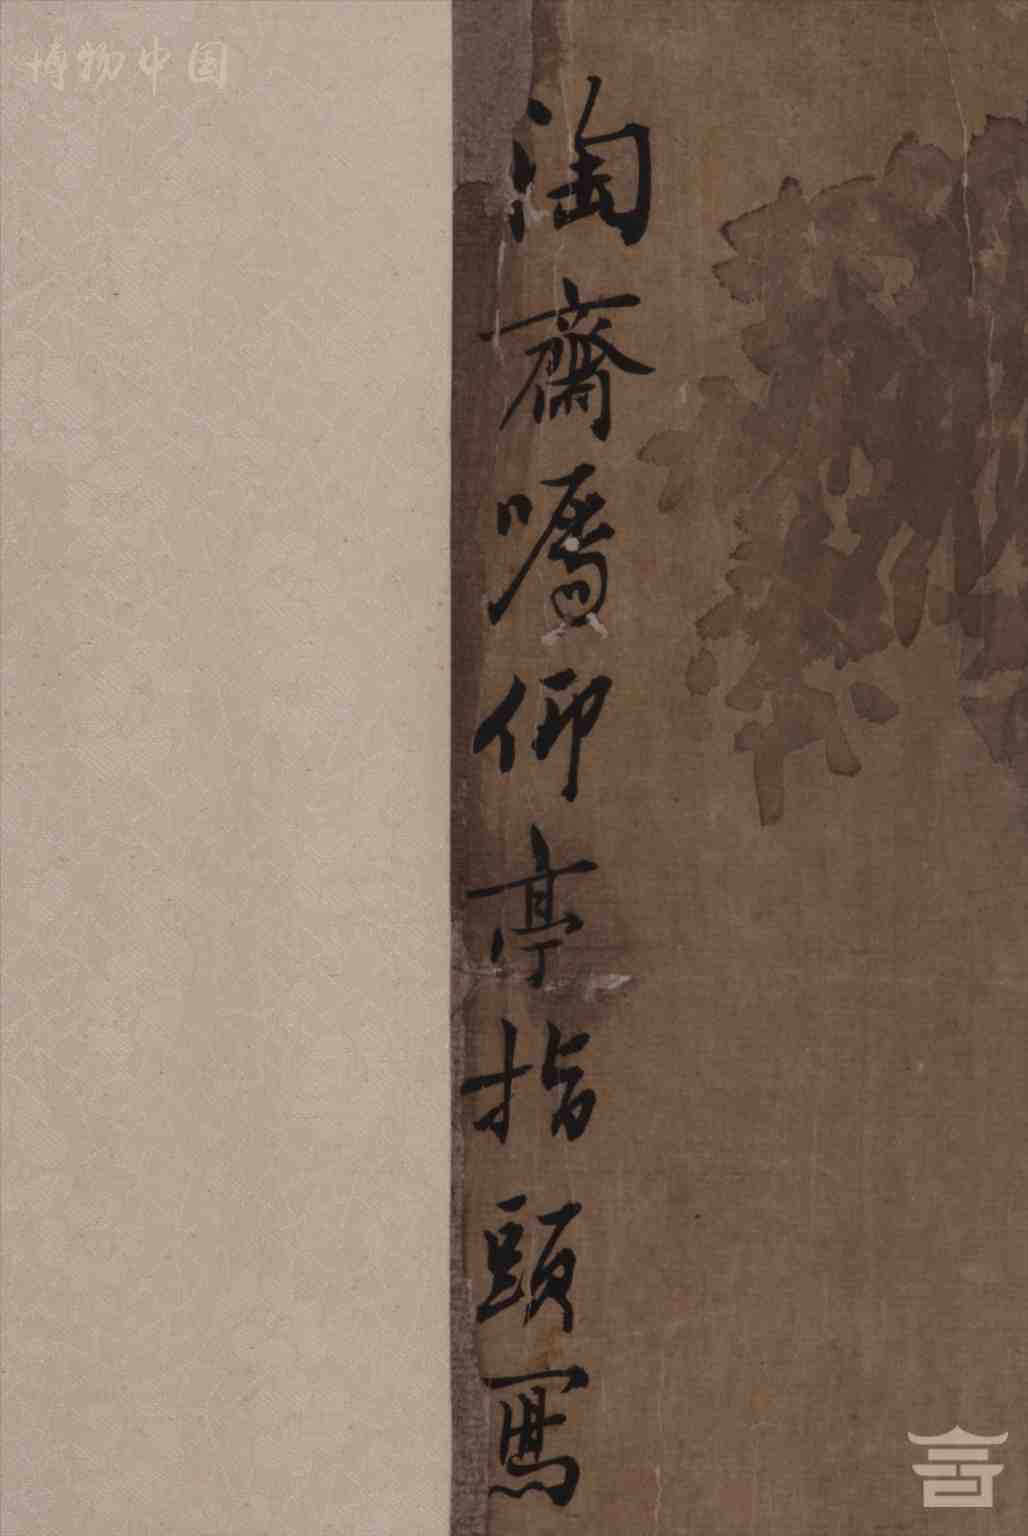 博物中国
淘齋嘱仰亭指頭寫